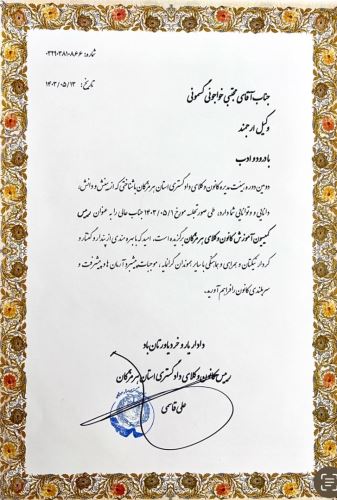 شماره: ۰۳۲۹۰۳۸۱۰۸۶۶
تاریخ: ۱۴۰۳/۰۵/۱۳
جناب آقای مجتبی خواجوئی گسموئی
وکیل ارجمند
با درود و ادب
دومین دوره هیئت مدیره کانون وکلای دادگستری استان هرمزگان با شناختی که از بینش و دانش،
دانایی و توانایی شما دارد، طی صورتجلسه مورخ ۱۴۰۳/۰۵/۱ جناب عالی را به عنوان رئیس
کمیسیون آموزش کانون وکلای هرمزگان برگزیده است. امید که با بهره مندی از پندار و گفتار و
کردار نیکتان و همراهی و هماهنگی با سایر هموندان گرانمایه، موجبات پیشبرد آرمان ها و پیشرفت و
سربلندی کانون را فراهم آورید.
دادار یار و خرد یاورتان باد
رییس کانون وکلای دادگستری استان هرمزگان
علی قاسمی